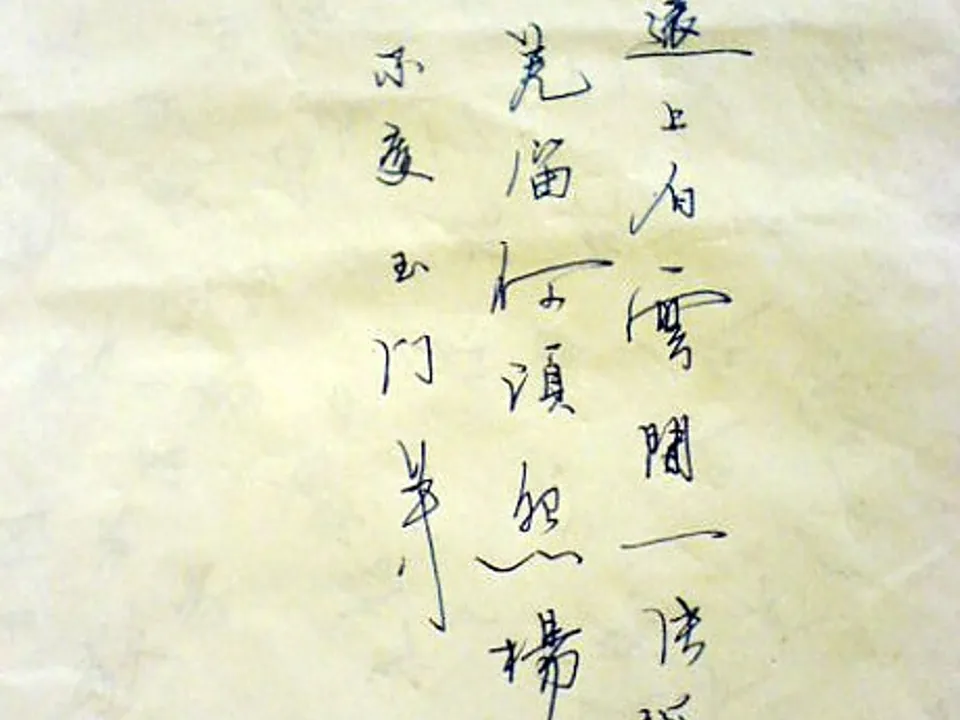 遠上白雲間一片
羌笛何須怨楊
不度玉門關